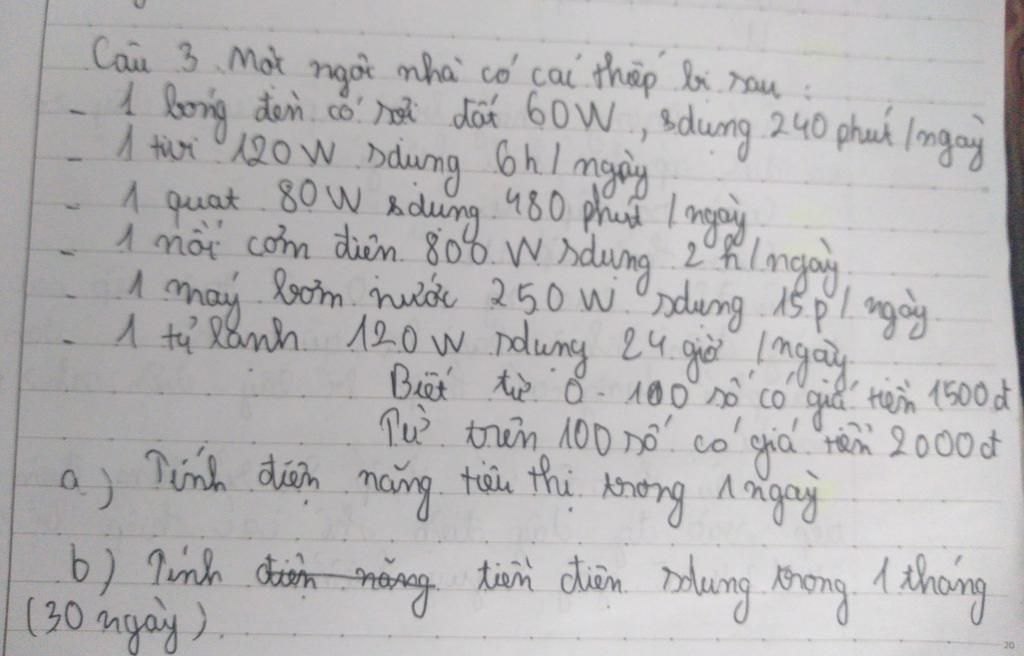 Câu 3. Một ngôi nhà có cái thiếp bị sau :
- 1 bóng đèn có sợi đốt 60W, sdụng 240 phút /ngày
- 1 tivi 120W sdụng 6h / ngày
- 1 quat 80W sdụng 480 phút / ngày
- 1 nồi cơm điên 800 W sdụng 2 h / ngày
- 1 máy bơm nước 250 W sdụng 15p / ngày.
- 1 tủ lanh 120W sdụng 24 giờ / ngày
Biết từ 0 - 100 số có giá tiền 1500đ
Từ trên 100 số có giá tiền 2000đ
a) Tính điện năng tiêu thị trong 1 ngày
b) Tính điện năng tiền điện sdụng trong 1 tháng
(30 ngày).
20